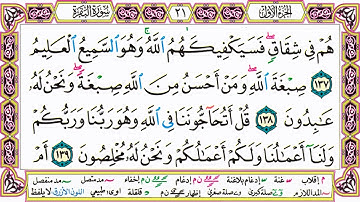 الجزء الأول ٢١ سورة البقرة
هُمْ فِي شِقَاقٍ فَسَيَكْفِيكَهُمُ اللَّهُ وَهُوَ السَّمِيعُ الْعَلِيمُ
﴿١٣٧﴾ صِبْغَةَ اللَّهِ وَمَنْ أَحْسَنُ مِنَ اللَّهِ صِبْغَةً وَنَحْنُ لَهُ
عَابِدُونَ ﴿١٣٨﴾ قُلْ أَتُحَاجُّونَنَا فِي اللَّهِ وَهُوَ رَبُّنَا وَرَبُّكُمْ
وَلَنَا أَعْمَالُنَا وَلَكُمْ أَعْمَالُكُمْ وَنَحْنُ لَهُ مُخْلِصُونَ ﴿١٣٩﴾ أَمْ